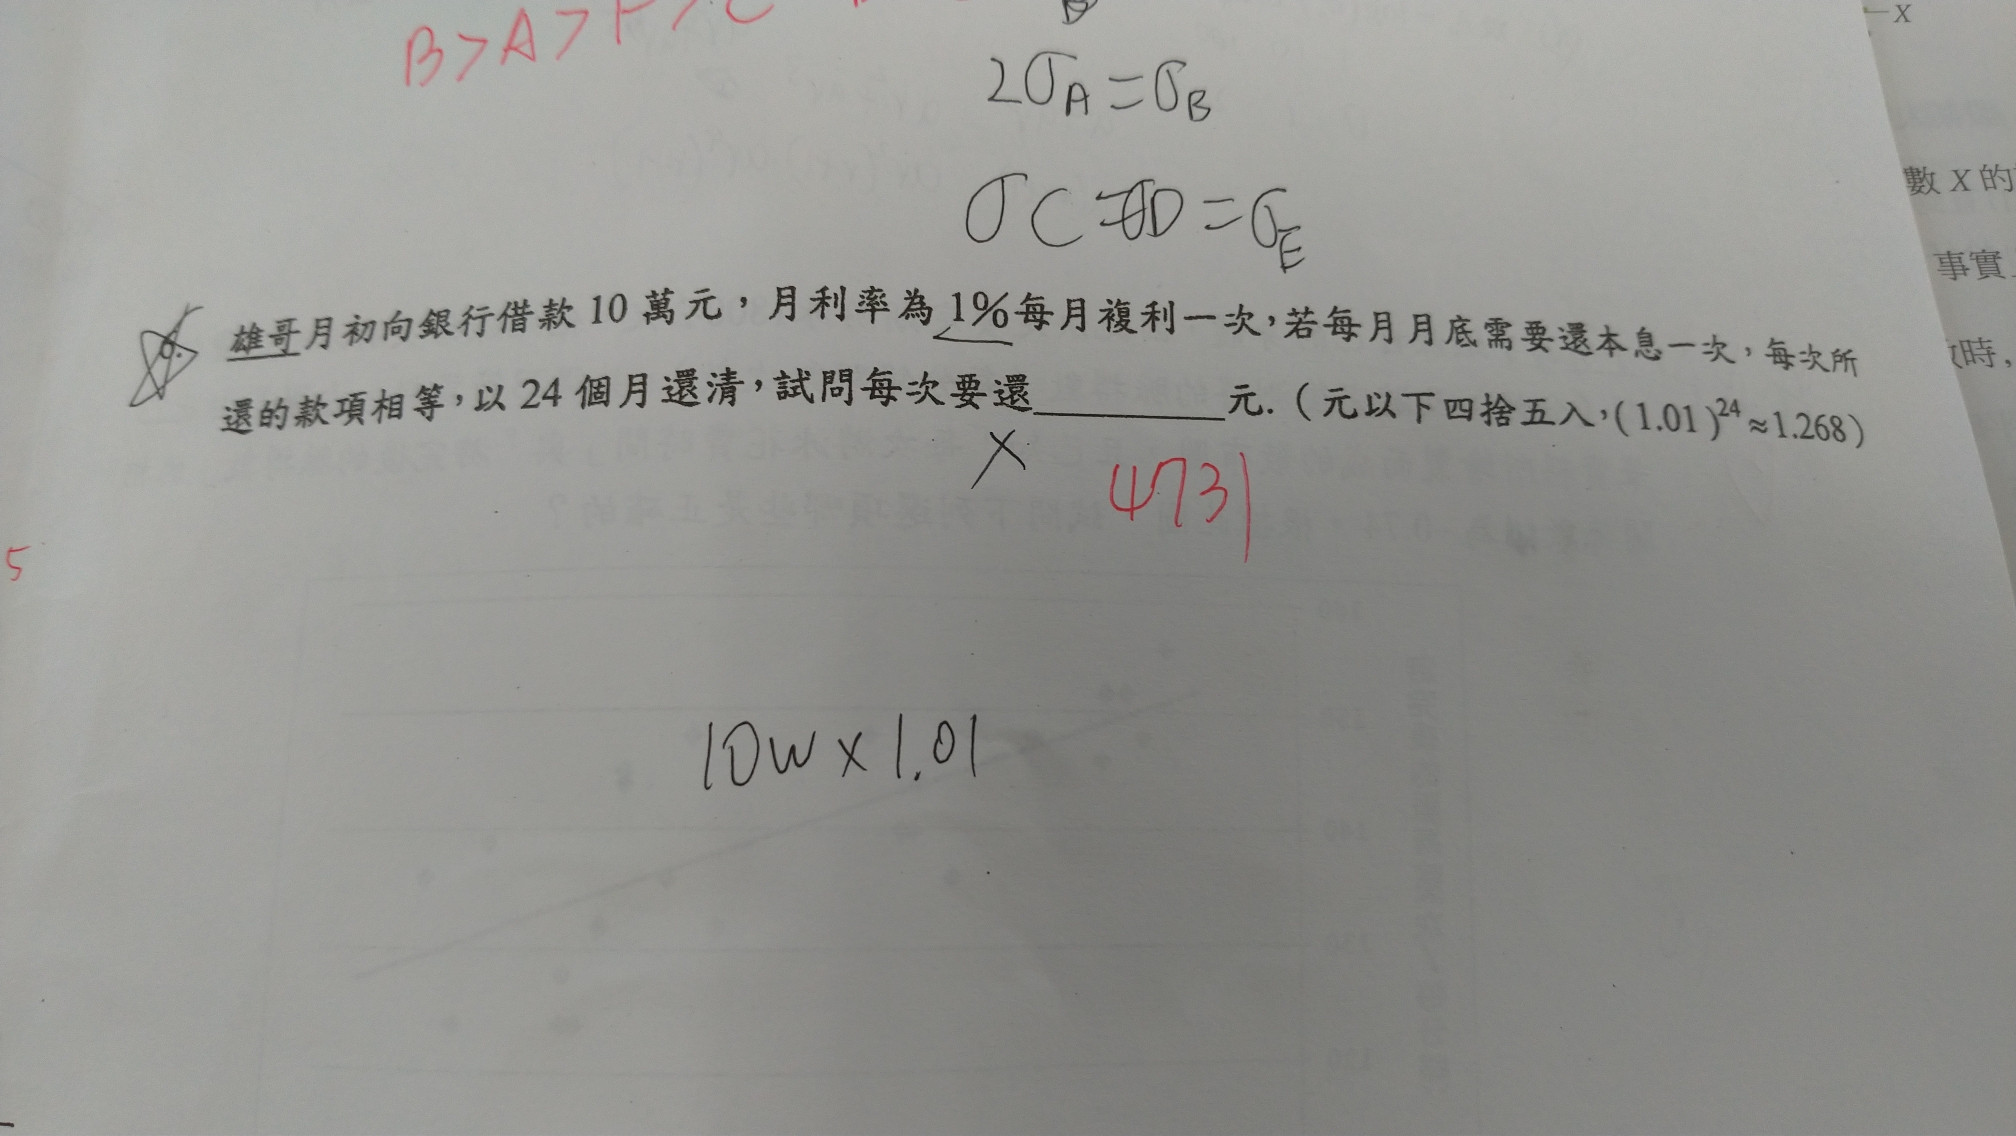 B>A>F>C
2σA=σB
σC=σD=σE
雄哥月初向銀行借款10萬元，月利率為1%每月複利一次，若每月月底需要還本息一次，每次所
還的款項相等，以24個月還清，試問每次要還________元.（元以下四捨五入，(1.01)^24≈1.268）
X
4731
5
10w×1.01
-X
數X的
事實
時，